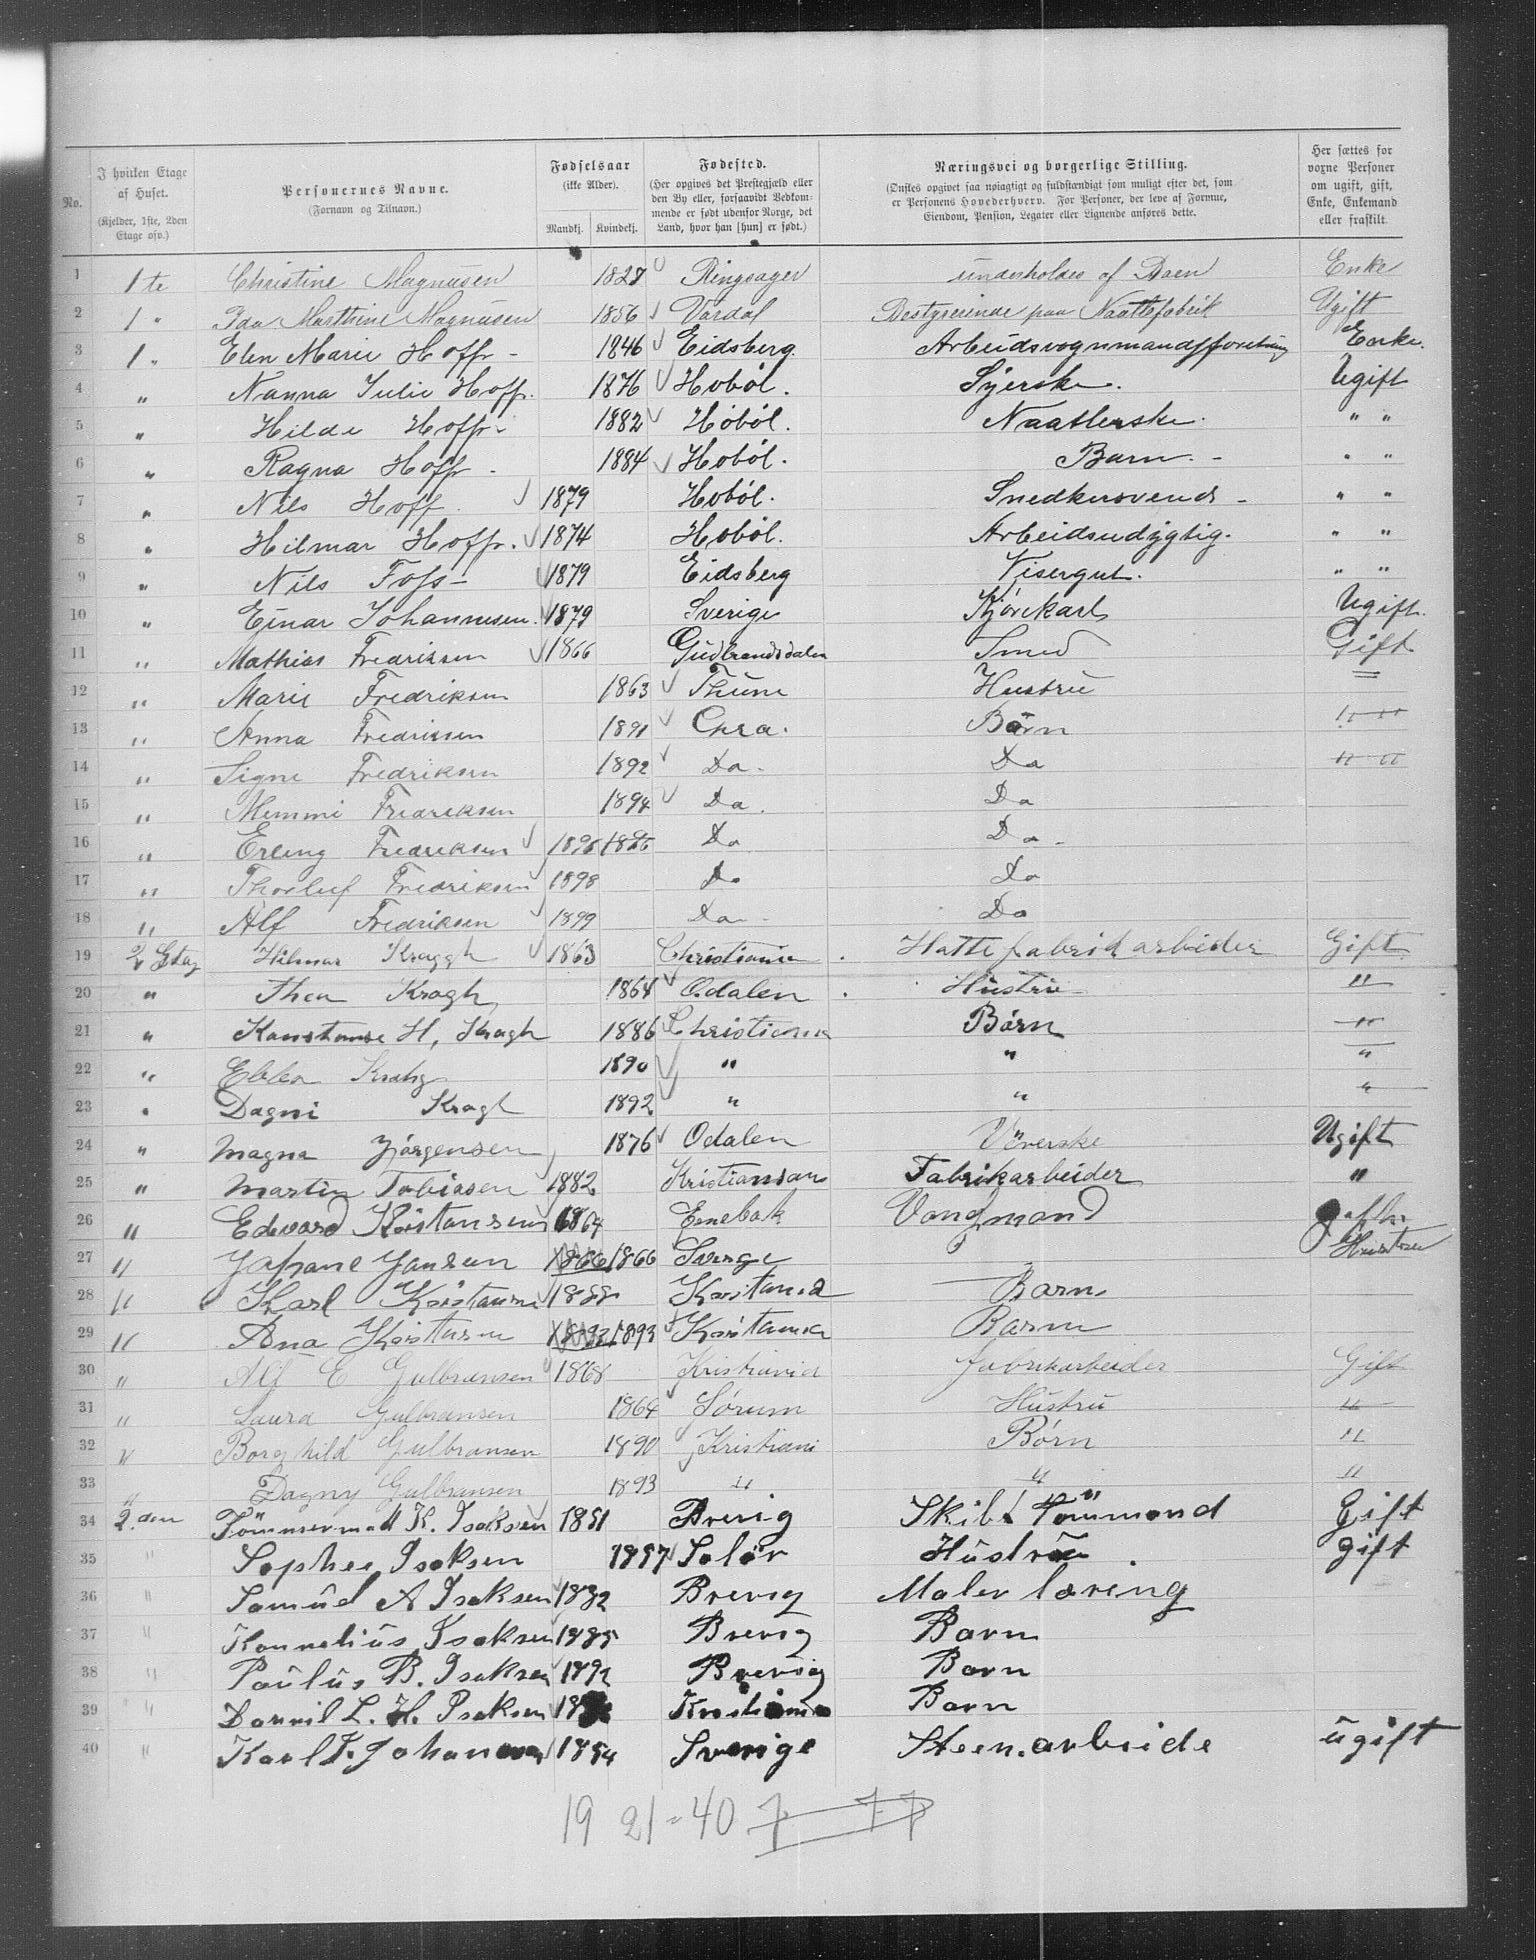 No.
I hvilken Etage af Huset. (Kjelder, 1ste, 2den Etage osv.)
Personernes Navne. (Fornavn og Tilnavn.)
Fødselsaar (ikke Alder). Mandkj. Kvindekj.
Fødested. (Her opgives det Prestegjæld eller den By eller, forsaavidt Vedkommende er født udenfor Norge, det Land, hvor han [hun] er født.)
Næringsvei og borgerlige Stilling. (Ønskes opgivet saa nøiagtigt og fuldstændigt som muligt efter det, som er Personens Hovederhverv. For Personer, der leve af Formue, Eiendom, Pension, Legater eller Lignende anføres dette.)
Her sættes for voxne Personer om ugift, gift, Enke, Enkemand eller fraskilt.
1 1 te Christine Magnusen 1828 Ringsager underholdes af Enke
2 1 " Ida Marthine Magnusen 1856 Vardal Bestyrerinde paa Ugift
3 1 " Elen Marie Hoff - 1846 Eidsberg. Arbeidsvognmandsforretning Enke.
4 " Nanna Julie Hoff. 1876 Hobøl. Syerske. Ugift
5 " Hilda Hoff - 1882 Hobøl. Naatlerske. " "
6 " Ragna Hoff - 1884 Hobøl. Barn. - " "
7 " Nils Hoff 1879 Hobøl. Snedkersvend - " "
8 " Hilmar Hoff. 1874 Hobøl. Arbeidsudygtig. " "
9 " Nils Foss - 1879 Eidsberg Visergut. " "
10 " Ejnar Johannesen. 1879 Sverige Kjørekarl Ugift.
11 " Mathias Fredriksen 1866 Gudbrandsdalen Smed Gift
12 " Marie Fredriksen 1863 Thune Hustru "
13 " Anna Fredriksen 1891 Chra. Børn " "
14 " Signe Fredriksen 1892 Do. Do " "
15 " Memmi Fredriksen 1894 Do. Do
16 " Erling Fredriksen 1896 1896 Do Do -
17 " Thorleif Fredriksen 1898 Do Do
18 " Alf Fredriksen 1899 Do - Do
19 2 Etag Hilmar Kraggh 1863 Christiania Hattefabrikarbeider Gift
20 " Thea Kragh 1864 Odalen Hustru "
21 " Konstanse H. Kragh 1886 Christiania Børn "
22 " Ebba 1890 " " "
23 " Dagni Kragh 1892 " " "
24 " Magna Jørgensen 1876 Odalen Væverske Ugift
25 " Martin Tobiasen 1882 Kristiansan Fabrikarbeider "
26 " Edvard Kristansen 1864 Enebak Vongmand gifte
27 " Jansen 1866 1866 Sverge Hustruen
28 " Karl Kristansen 1888 Kristania Barn
29 " Ana Kristansen 1893 1893 Kristania Barn
30 " Alf E Gulbransen 1868 Kristiania fabrikarbeider Gift
31 " Laura Gulbransen 1864 Sørum Hustru "
32 " Borghild Gulbransen 1890 Kristiani Børn "
33 " Dagny Gulbransen 1893 " " "
34 2.den Tømmermatt K. Isaksen 1851 Brevig Skibs Tømmand Gift
35 " Sophie Isaksen 1857 Solør Hustru. gift
36 " Samuel A Isaksen 1882 Brevig Maler læreng
37 " Kornelius Isaksen 1885 Brevig Barn
38 " Paulus B. Isaksen 1892 Brevig Barn
39 " Daniel L. H. Isaksen Kristiania Barn
40 " Karl F. Johansen 1854 Sverige Steen.arbeide ugift
19 21-40 7 77